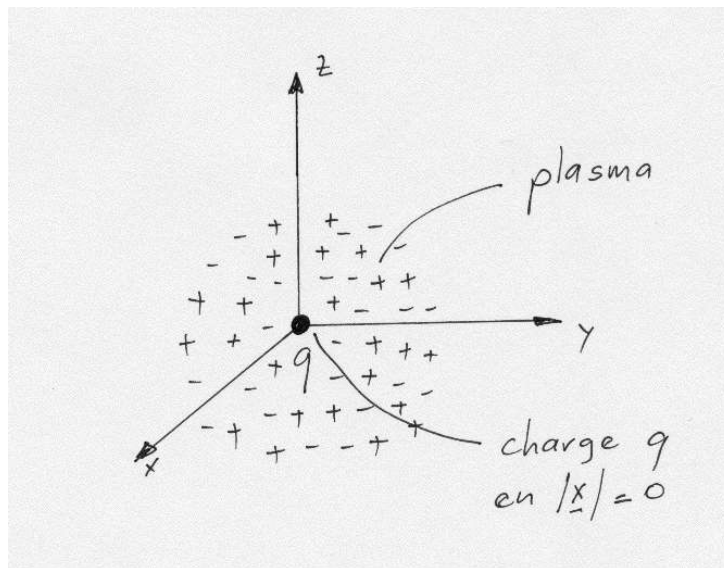 z
plasma
y
q
x
charge q
en |x| = 0